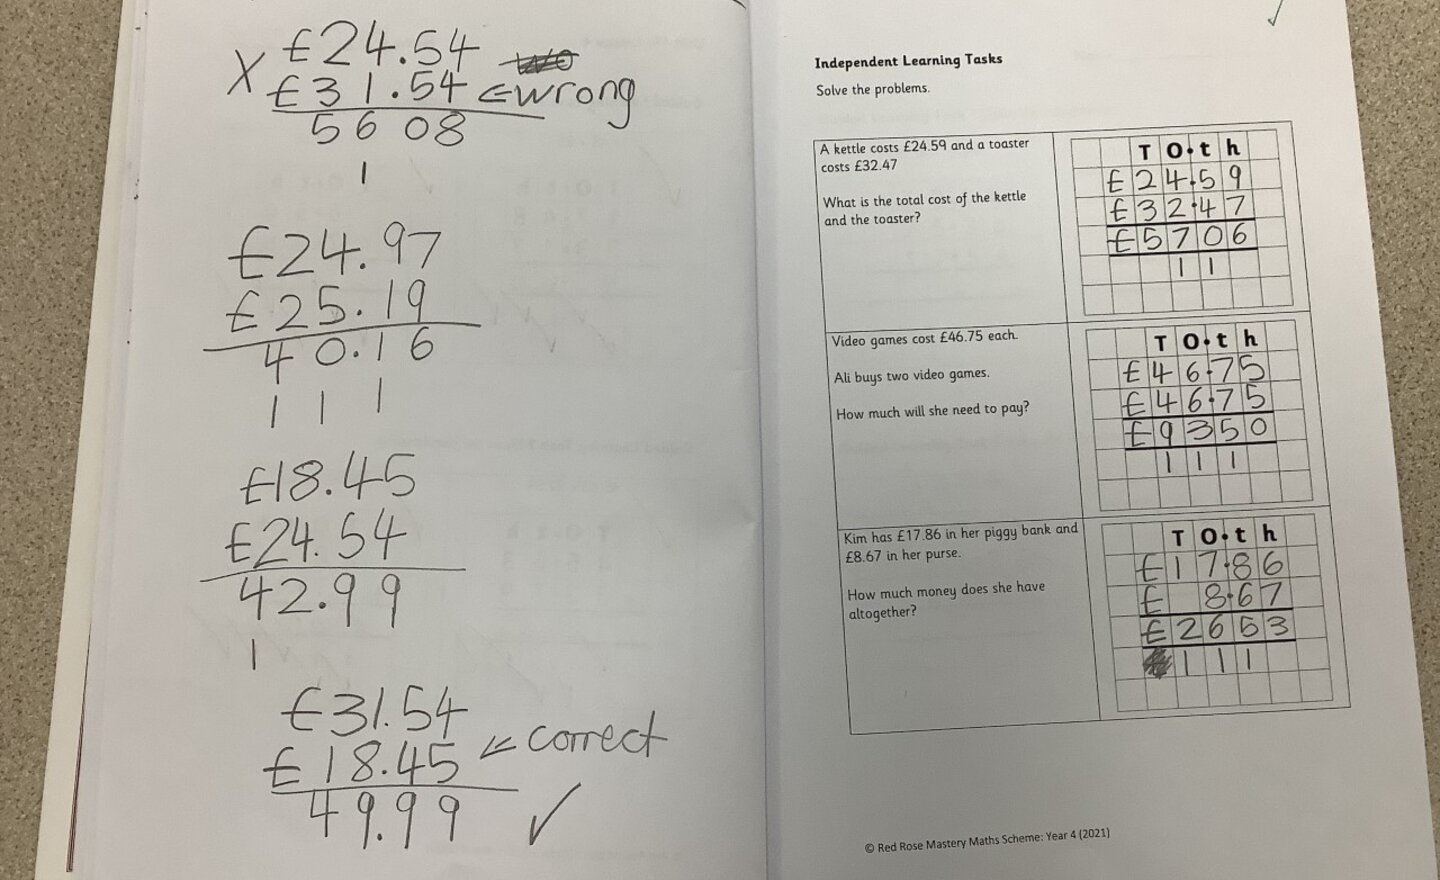 £24.54
X £31.54 ⇐ wrong
56 08
1
£24.97
£25.19
40.16
1 1 1
£18.45
£24.54
42.99
1
£31.54
£18.45 ⇐ correct
49.99 ✓
✓
Independent Learning Tasks
Solve the problems.
A kettle costs £24.59 and a toaster
costs £32.47
What is the total cost of the kettle
and the toaster?
T O.t h
£24.59
£32.47
£5706
1 1
Video games cost £46.75 each.
Ali buys two video games.
How much will she need to pay?
T O.t h
£46.75
£46.75
£9350
1 1 1
Kim has £17.86 in her piggy bank and
£8.67 in her purse.
How much money does she have
altogether?
T O.t h
£17.86
£ 8.67
£2653
1 1 1
© Red Rose Mastery Maths Scheme: Year 4 (2021)